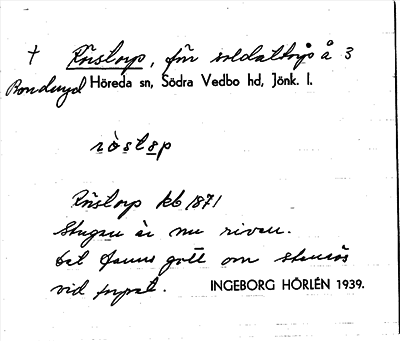 † Rörstorp, för soldattorp å 3
Bonderyd Höreda sn, Södra Vedbo hd, Jönk. l.
Rörstorp kb 1871
Stugan är nu riven.
Det fanns gott om stenrös
vid torpet. INGEBORG HÖRLÉN 1939.